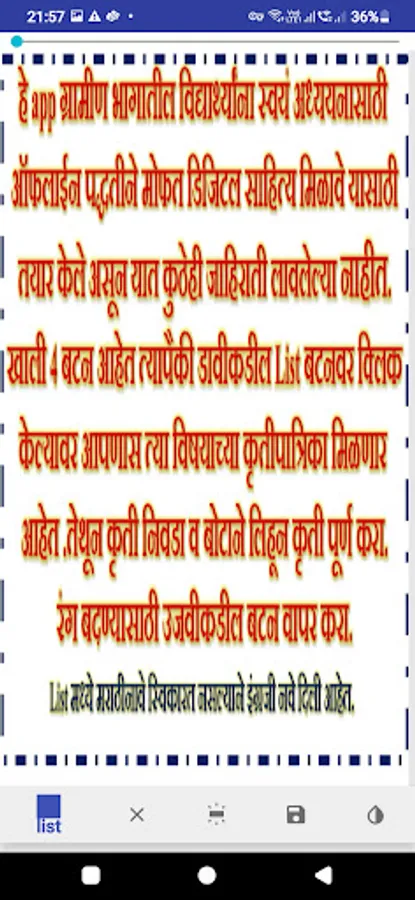 21:57 36%
हे app ग्रामीण भागातील विद्यार्थ्यांना स्वयं अध्ययनासाठी
ऑफलाईन पद्धतीने मोफत डिजिटल साहित्य मिळावे यासाठी
तयार केले असून यात कुठेही जाहिराती लावलेल्या नाहीत.
खाली 4 बटन आहेत त्यापैकी डावीकडील List बटनवर क्लिक
केल्यावर आपणास त्या विषयाच्या कृतीपात्रिका मिळणार
आहेत .तेथून कृती निवडा व बोटाने लिहून कृती पूर्ण करा.
रंग बदण्यासाठी उजवीकडील बटन वापर करा.
List मध्ये मराठीनावे स्विकारत नसल्याने इंग्रजी नवे दिली आहेत.
list